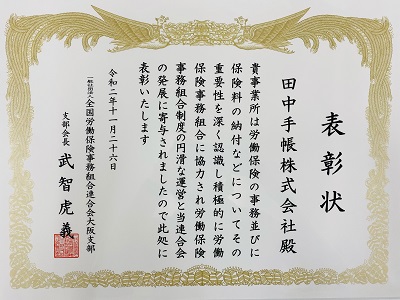 表彰状
田中手帳株式会社殿
貴事業所は労働保険の事務並びに
保険料の納付などについてその
重要性を深く認識し積極的に労働
保険事務組合に協力され労働保険
事務組合制度の円滑な運営と当連合会
の発展に寄与されましたので此処に
表彰いたします
令和二年十一月二十六日
一般社団法人全国労働保険事務組合連合会大阪支部
支部会長 武智虎義